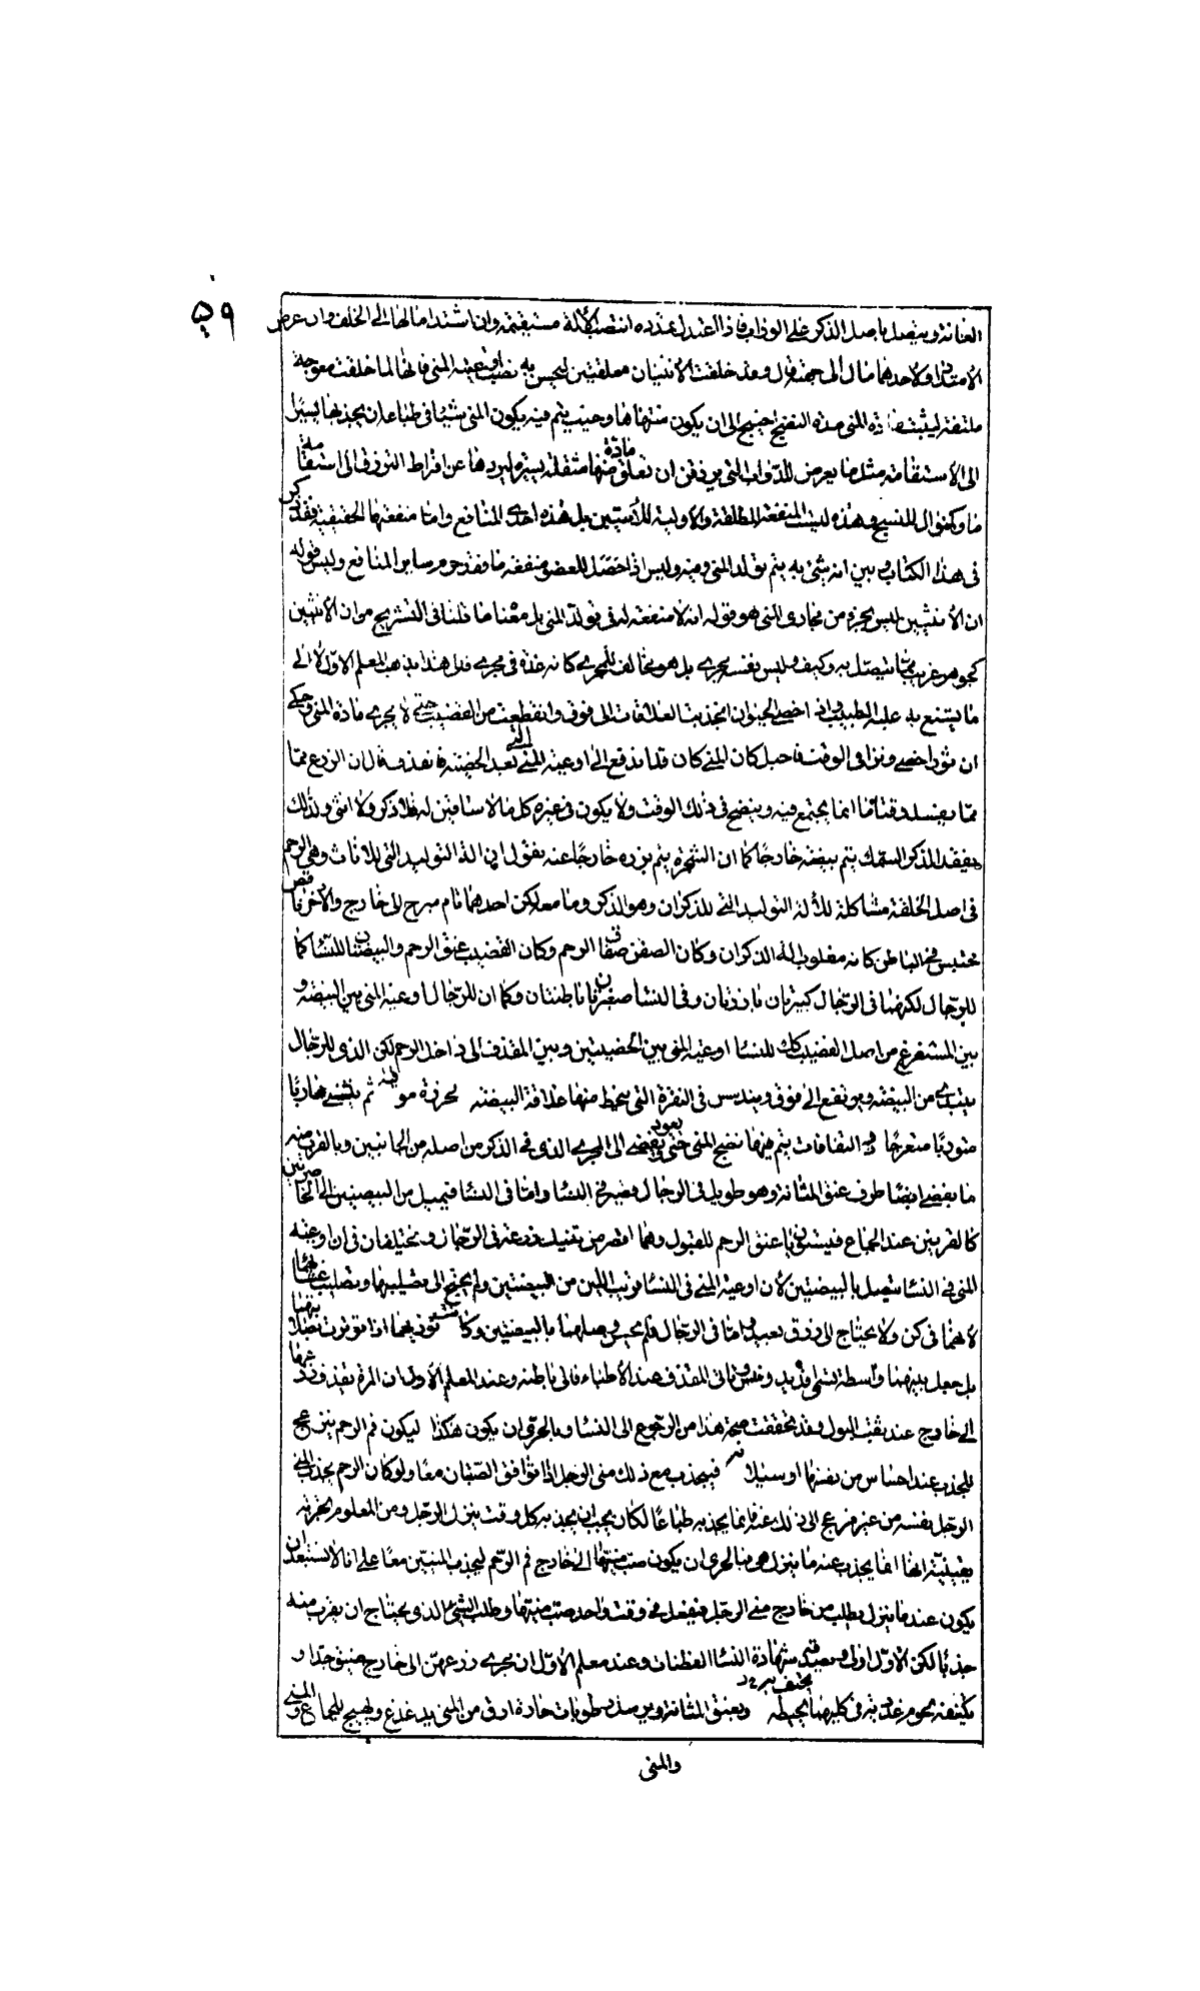 ٥٩
العانة ويتصل باصل الذكر على الوراب فاذا اعتدل تمدده انتصب الآلة مستقيمة وان اشتد امالها الى الخلف وان عرض
الامتداد لاحدهما مال الى جهته قال وقد خلقت الانثيان معلقتين ليحبس به اوعية المنى فانها لما خلقت معوجة
ملتفة ليثبت مادة المنى مدة النضج احتيج الى ان يكون منتهاها وحيث يتم فيه يكون المنى شيئا في طباعه ان يجذبها يسيرا
الى الاستقامة مثل ما يعرض للدواب التي من ان تعلق منها مادة مثقلة يسيرة ليردها عن افراط التوفى الى استقامة
ما وكنوال النسيج وهذه ليست المنفعة المطلقة والاولية للانثيين بل هذه احدى المنافع واما منفعتها الحقيقية فقد ذكر
فى هذا الكتاب وبين انه شئ به يتم تولد المنى ومنه وليس اذا حصل للعضو منفعة ما فقد حرم سائر المنافع وليس قوله
ان الانثيين ليس بجزء من مجارى المنى هو قوله انه لا منفعة له فى تولد المنى بل معناه ما قلنا فى التشريح من ان الانثيين
كجوهر غريب مما يتصل به وكيف وليس نفسه بمجرى بل هو مخالف للمجرى كانه غدة فى مجرى قال هذا مذهب المعلم الاول الى
ما يشنع به عليه الطبيب واذا خصى الحيوان انجذبت العلاقات الى فوق وانقطعت من القضيب حتى لا يجرى مادة المنى وحكى
ان ثورا خصى ونزا فى الوقت فاحبل كان المنى كان قد اندفع الى اوعية المنى التى بعد الخصية فانقذف قال ان الزرع مما
مما يفسد وقتا ما انما يجتمع فيه وينضج فى ذلك الوقت ولا يكون فى غيره كل ما لا ساقين له فلا ذكر ولا انثى ولذلك
يفقد الذكر السمك يتم بيضه خارجا كما ان الشجرة يتم بزره خارجا عنه يقول ان آلة التوليد التى للاناث وهى الرحم
فى اصل الخلقة مشاكلة لآلة التوليد التى للذكران وهو الذكر وما معه لكن احدهما تام مبرح الى خارج والآخر ناقص
محتبس فى الباطن كانه مقلوب آلة الذكران وكان الصفن صفاق الرحم وكان القضيب عنق الرحم والبيضتان للنساء كما
للرجال لكنهما فى الرجال كبيرتان بارزتان وفى النساء صغيرتان باطنتان وكما ان للرجال اوعية المنى بين البيضة و
بين المستفرغ من اصل القضيب كذلك للنساء اوعية المنى بين الخصيتين وبين المقذف الى داخل الرحم لكن الذى للرجال
يبتدى من البيضة ويرتفع الى فوق ويندس فى النقرة التى ينحط منها علاقة البيضة محرزة موثقة ثم ينثنى هاربا
متوربا متعرجا ذا التفافات يتم فيها نضج المنى حتى يعود ويفضى الى المجرى الذى فى الذكر من اصله من الجانبين وبالقرب منه
ما يفضى ايضا طرف عنق المثانة وهو طويل فى الرجال قصير فى النساء واما فى النساء فيميل من البيضتين الى الخاصرتين
كالقرنين عند الجماع فيستويان عنق الرحم للقبول وهما اقصر من وزرعة فى الرجال ويختلفان فى ان اوعية
المنى فى النساء يتصل بالبيضتين لان اوعية المنى فى النساء قريب اللين من البيضتين ولم يحتج الى تصليبهما وتصليب غشائهما
لانهما فى كن ولا يحتاج الى زرق بعيد واما فى الرجال فلم يحسن وصلهما بالبيضتين وكانت تؤذيهما اذا توترت بصلابتها
بل جعل بينهما واسطة تسمى وفوهاتان المقذف عند الاطباء فالى باطنه وعند المعلم الاول ان المرأة يقذف زرعها
الى خارج عند ثقب البول وقد تحققت صحة هذا من الرجوع الى النساء وبالحرى ان يكون هكذا ليكون فم الرحم ينزعج
للجذب عند احساس من نفسها او سيلانه فيجذب مع ذلك منى الرجل اذا توافق الصبان معا ولو كان الرحم يجذب المنى
الرجل نفسه من غير مزعج الى ذلك عنه فانما يجذبه طباعا لكان يجب ان يجذبه كل وقت ينزل الرجل ومن المعلوم بتجربة
يقينية انها انما يجذب عند ما ينزل هو فبالحرى ان يكون صب منيها الى خارج فم الرحم ليجذب المنيين معا على انا لا نستبعد ان
يكون عند ما ينزل يطلب من خارج منى الرجل فيفعل فى وقت واحد صب منيها وطلب الشئ الذى يحتاج ان يقرب منه
جذبا لكن الاول اولى ويصدقه شهادة النساء الفطنات وعند معلم الاول ان مجرى زرعهن الى خارج ضيق جدا و
يكتنفه لحوم غددية فى كليهما يحيط به ويعنق المثانة ويرسل رطوبات حارة ارق من المنى يدغدغ ويهيج للجماع والمنى
والمنى